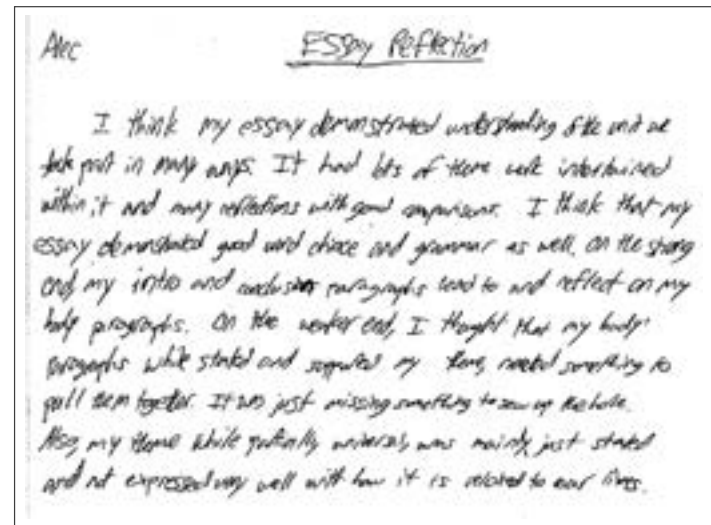 Alec Essay Reflection
I think my essay demonstrated understanding of the unit we
took part in many ways. It had lots of theme work intertwined
within it and many reflections with good comparisons. I think that my
essay demonstrated good word choice and grammar as well. On the strong
end, my intro and conclusion paragraphs lead to and reflect on my
body paragraphs. On the weaker end, I thought that my body
paragraphs while stated and supported my theme, needed something to
pull them together. It was just missing something to sew up the hole.
Also, my theme while partially universal, was mainly just stated
and not expressed very well with how it is related to our lives.